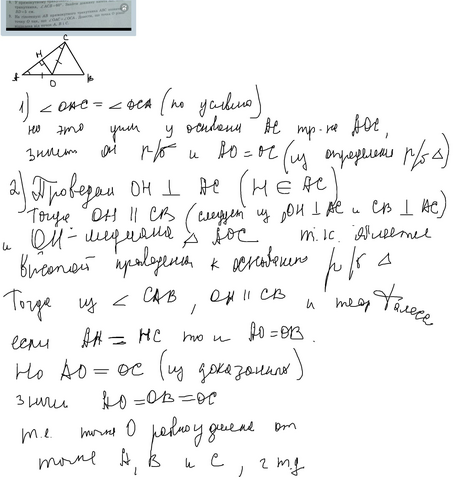 C
H
A
O
B
1) ∠OAC = ∠OCA (по условию)
но это углы у основания AC тр-ка AOC,
значит он р/б и AO = OC (из определения р/б Δ)
2) Проведем OH ⊥ AC (H ∈ AC)
Тогда OH || CB (следует из OH ⊥ AC и CB ⊥ AC)
и OH - медиана Δ AOC т.к. является
высотой проведенной к основанию р/б Δ
Тогда из ∠ CAB, OH || CB и теор Фалеса
если AH = HC то и AO = OB.
Но AO = OC (из доказанного)
значит AO = OB = OC
т.е. точка O равноудалена от
точек A, B и C, ч т д